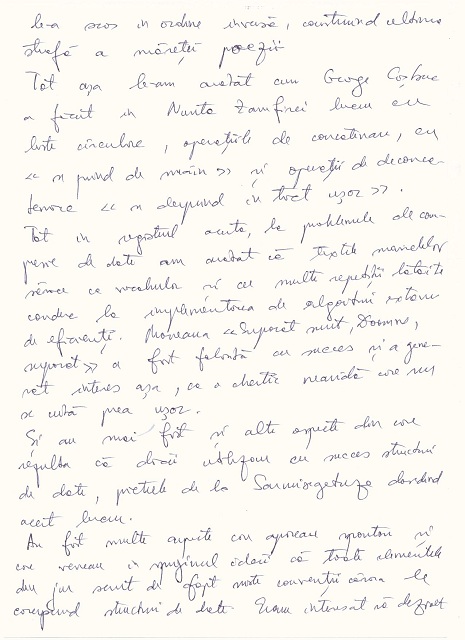 le-a scos in ordine inversă, construind ultima
strofă a măreței poezii
Tot așa le-am arătat cum George Coșbuc
a făcut in Nunta Zamfirei lucru cu
liste circulare, operațiile de concatenare, cu
<< se prind de mâini >> și operații de deconca-
tenare << se desprind in trot ușor >>.
Tot in registrul acesta, la problemele de com-
presie de date am arătat că textele manelelor
sărace ca vocabular și cu multe repetiții
conduc la implementarea de algoritmi extrem
de eficienți. Maneaua << Supărat sunt, Doamne,
supărat >> a fost folosită cu succes și a gene-
rat interes așa, ca o chestie neavidă care nu
se uită prea ușor.
Și au mai fost și alte aspecte din care
rezulta că dacii utilizau cu succes structuri
de date, pietrele de la Sarmisegetuza dovedind
acest lucru.
Au fost multe aspecte care apăreau spontan și
care veneau in sprijinul ideii că toate elementele
din jur sunt de fapt niște convenții cărora le
corespund structuri de date. Eram interesat să